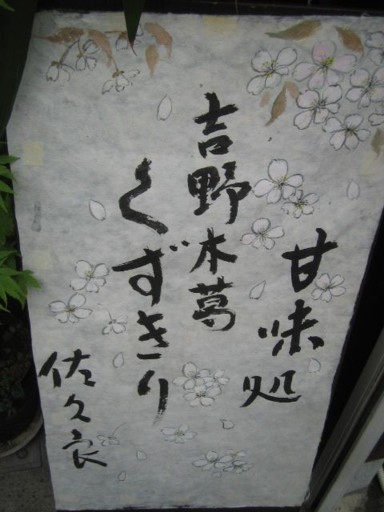 甘味処
吉野本葛
くずきり
佐久良